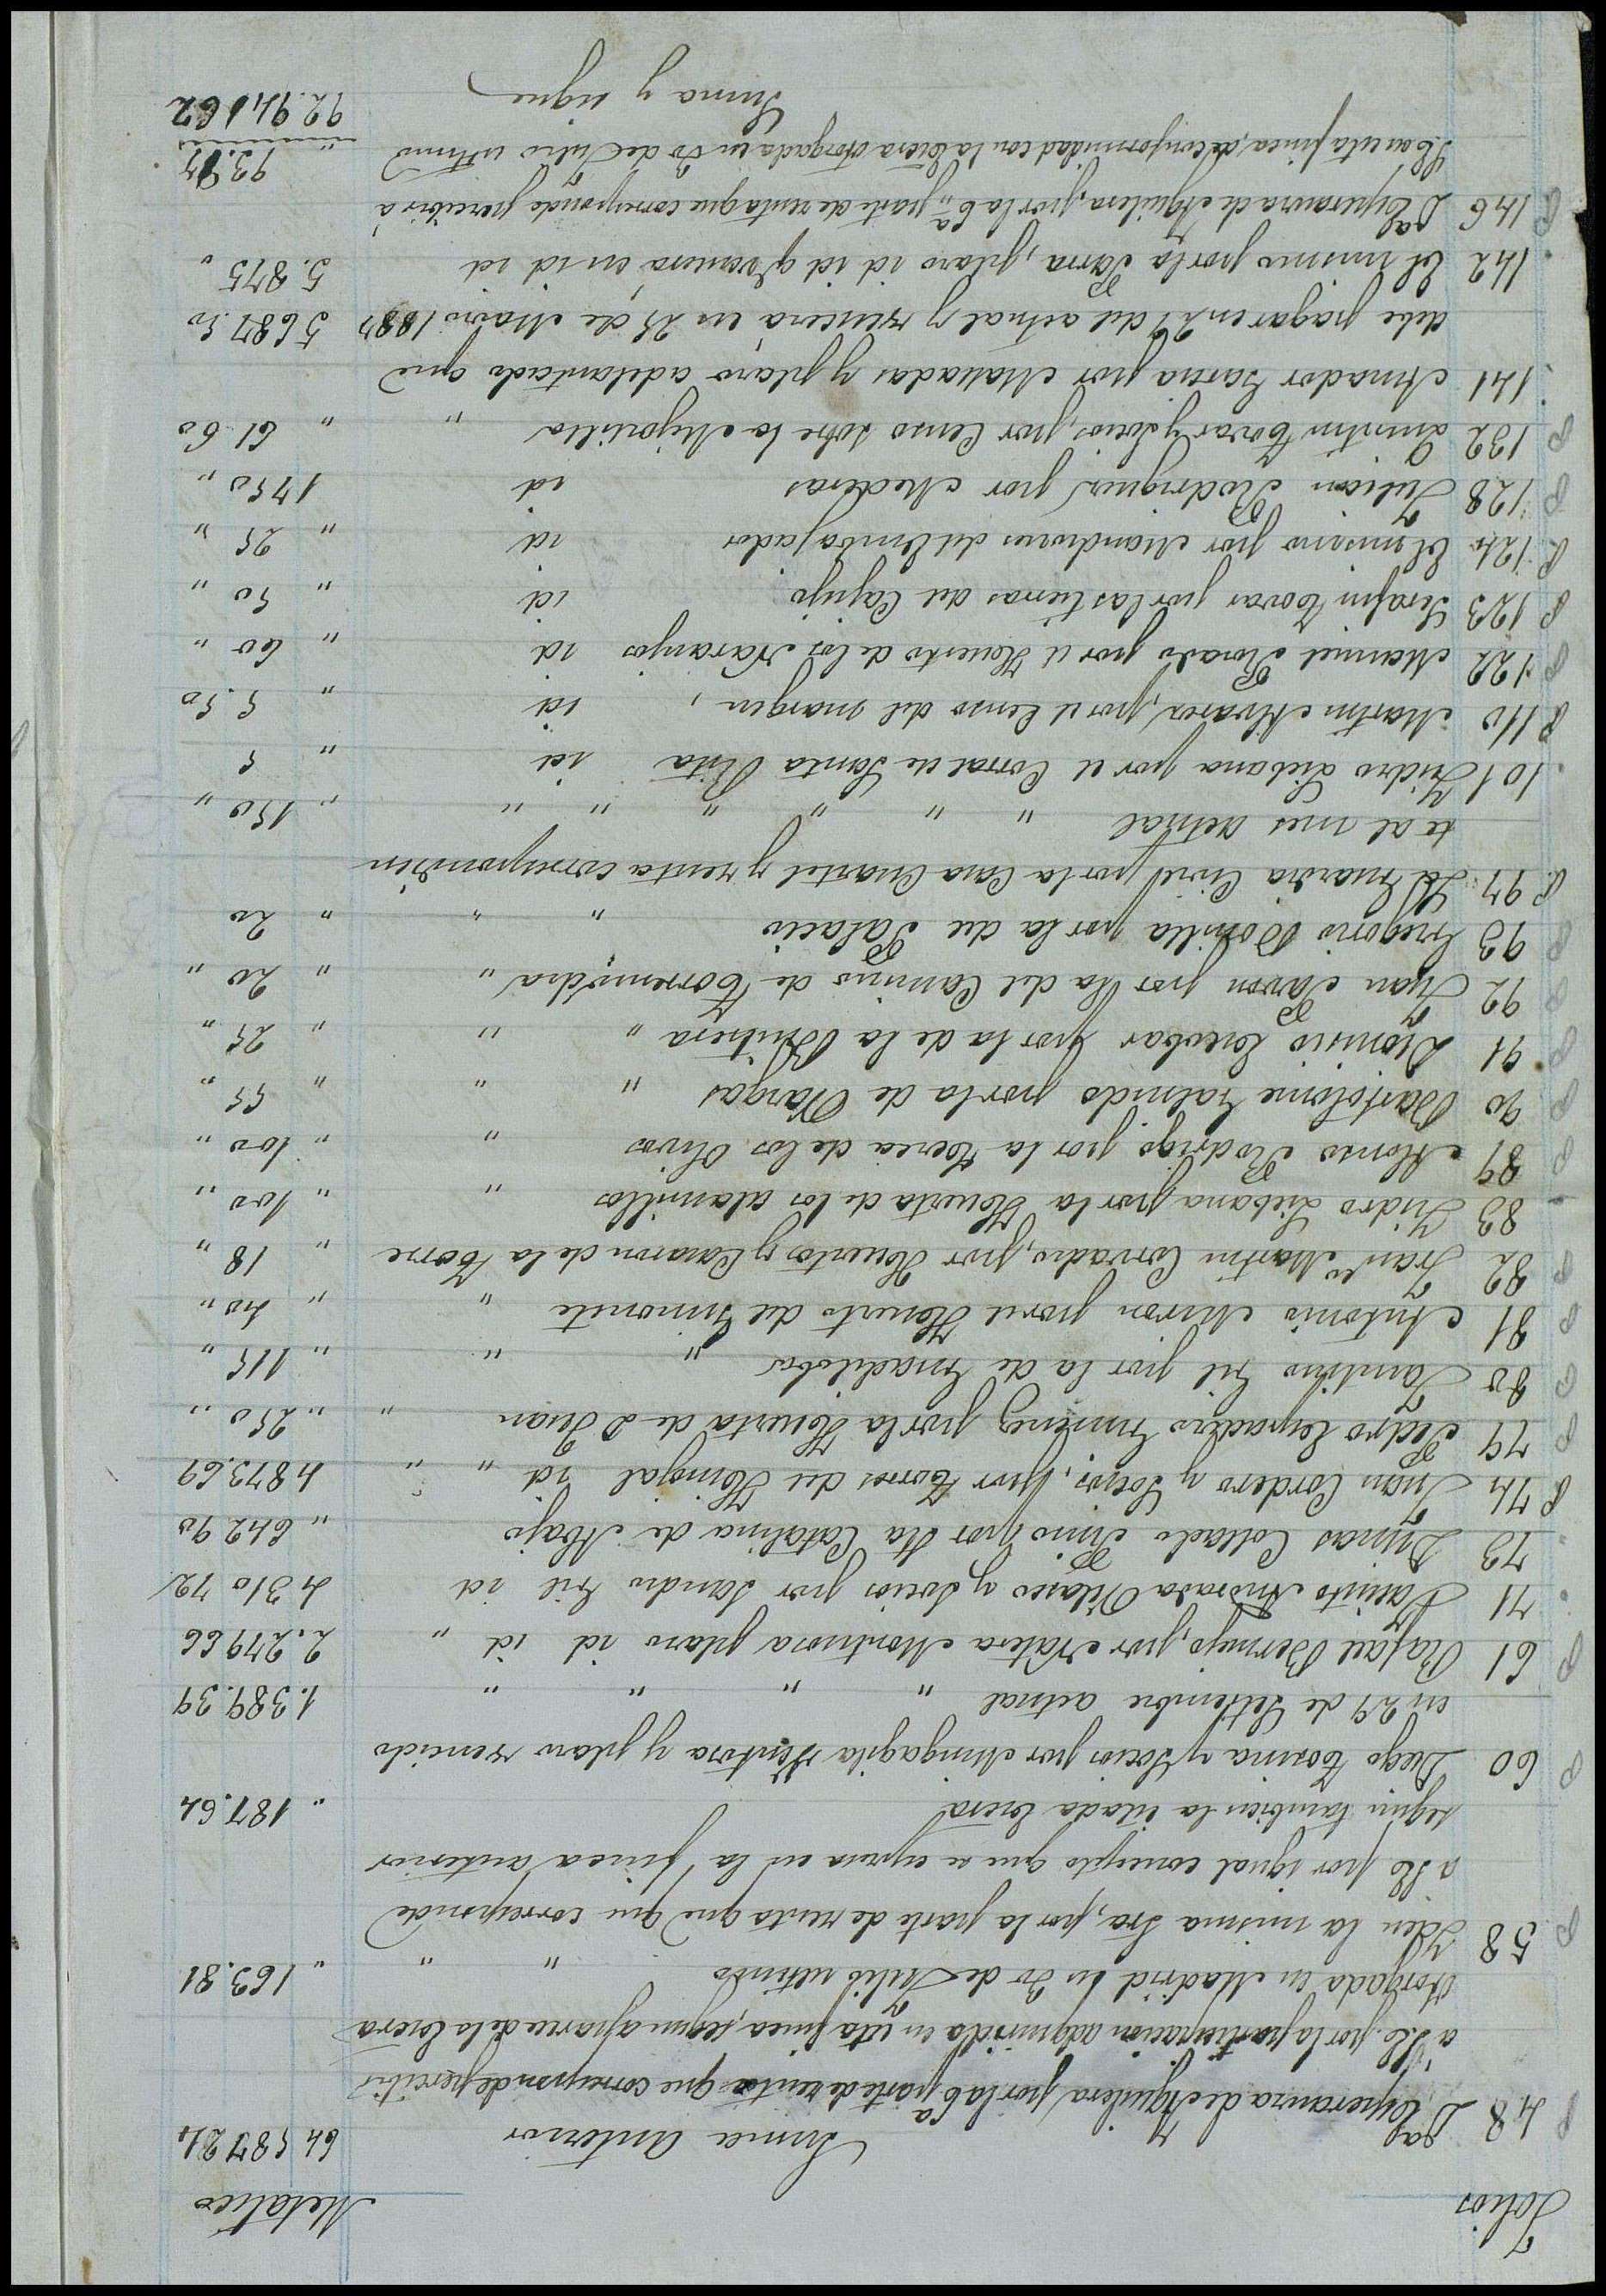 Folios Metalico
Suma anterior 64 587 24
48 Dª Esperanza de Aguilera, por la 6ª parte de renta que corresponde percibir
á S.E. por la participacion adquirida en esta finca, segun aparece de la Escrª
otorgada en Madrid en 30 de Julio ultimo " " " 163.81
58 Iden la misma Sra, por la parte de renta que corresponde
a SE por igual concepto que se expresa en la finca anterior
segun tambien la citada Escrª " 187.64
60 Diego Cosina y Socios por Mingagila Ventosa y plazo vencido
en 29 de Setiembre actual " " " " 1.389.39
61 Rafael Bermejo, por Natera Montuosa plazo id id " 2.279 66
71 Jacinto Andrada Velasco y Socios por Sancho Gil id 4 310 72
73 Dimas Collado Pino, por Sta Catalina de Abajo " 642 90
74 Juan Cordero y Socios, por Torros del Hinojal id " " 4 873.69
79 Pedro Espadero Gimenez por la Huerta de D Juan " " 250 "
80 Santiago Gil por la de Guadilobos " " " 115 "
81 Antonio Miron por el Huerto del Simonete " " 40 "
82 Franco Martin Corvadio, por Huertos y Casaron de la Torre " 18 "
83 Isidro Liebana por la Huerta de los alamillos " " 100 "
89 Alonso Rodrigo por la Cerca de los Olivos " " 100 "
90 Bartolome Galindo por la de Vargas " " " 55 "
91 Dionisio Escobar por la de la Butrera " " " 25 "
92 Juan Pavon por la del Camino de Torremocha " " 20 "
93 Gregorio Bonilla por la del Palacio " " " 20
97 La Guardia Civil por la Casa Cuartel y renta correspondien
te al mes actual " " " " " " " 150 "
101 Isidro Liebana por el Corral de Santa Rita id " 5
110 Martin Alvarez, por el Censo del margen, id " 5.50
122 Manuel Rosado por el Huerto de los Naranjos id " 60 "
123 Serafin Tovar por las tierras del Cajigo id " 50 "
124 El mismo por Mandrones del Embajador id " 25 "
128 Julian Rodriguez por Maderas id 1750 "
132 Quintin Tovar y Socios, por Censo sobre la Mejostilla " " 61 60
141 Amador Garcia por Malladas y plazo adelantado que
debe pagar en 29 del actual y vencerá en 25 de Marzo 1887 5 687.50
142 El mismo por la Parra, plazo id id y vencera en id id 5.875 "
146 Dª Esperanza de Aguilera, por la 6ª parte de renta que corresponde percibir á
SE en esta finca, de conformidad con la Escrª otorgada en 30 de Julio ultimo " 93.97
Suma y sigue 92.941 62